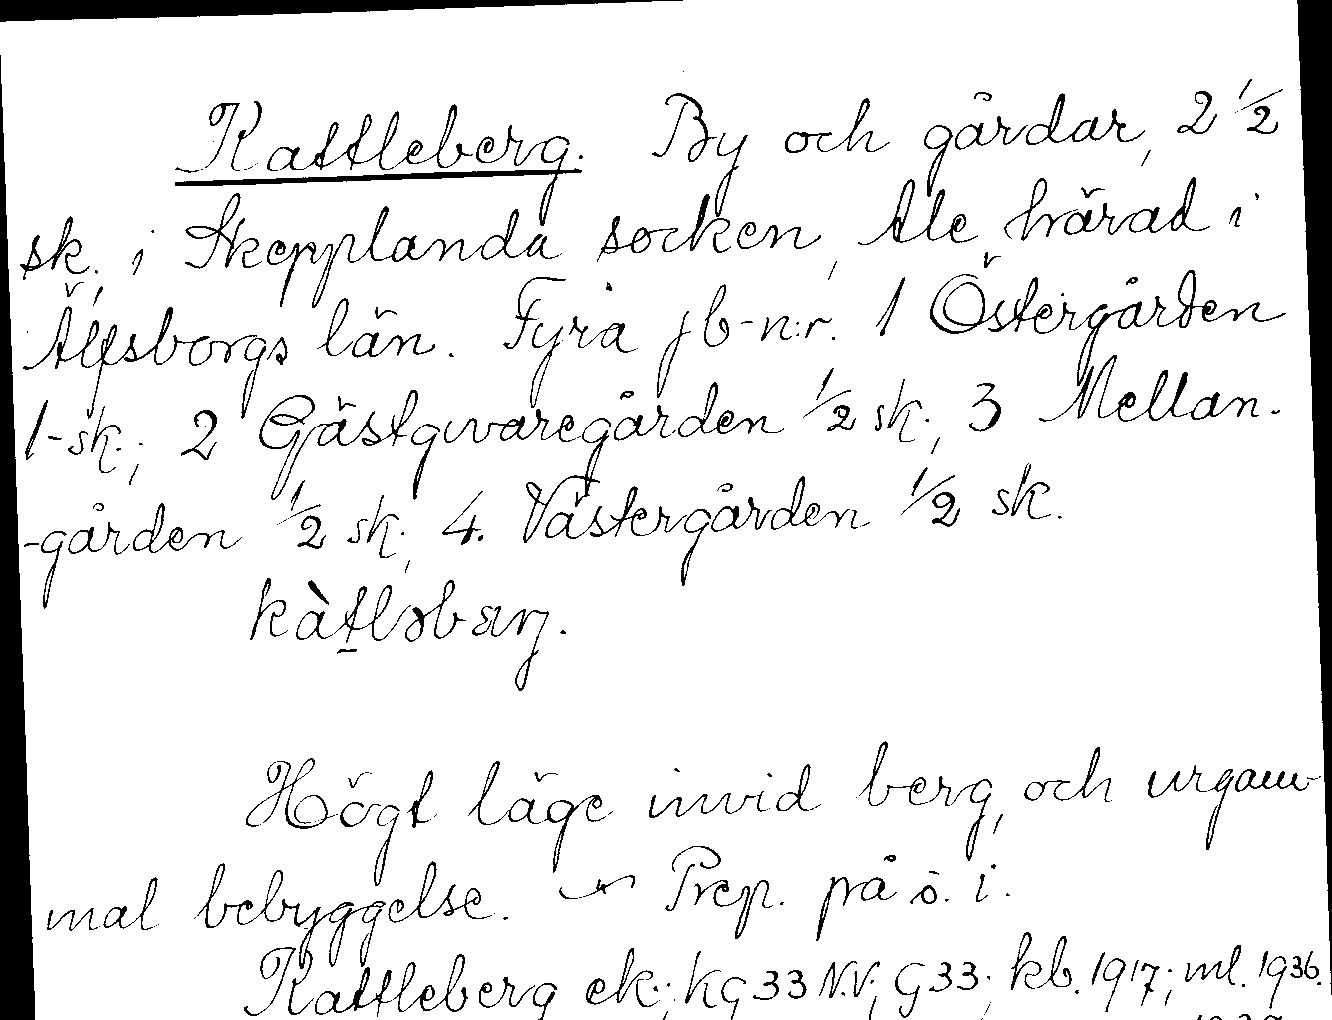 Kattleberg. By och gårdar, 2 1/2
sk. i Skepplanda socken, Ale härad i
Älfsborgs län. Fyra jb-n:r. 1 Östergården
1-sk.; 2 Gästgivaregården 1/2 sk., 3 Mellan-
-gården 1/2 sk., 4. Västergården 1/2 sk.
kàtləbærj.
Högt läge invid berg, och urgam-
mal bebyggelse. Prep. på o. i.
Kattleberg ek.; kg 33 N.V.; G33; kb. 1917; ml. 1936.